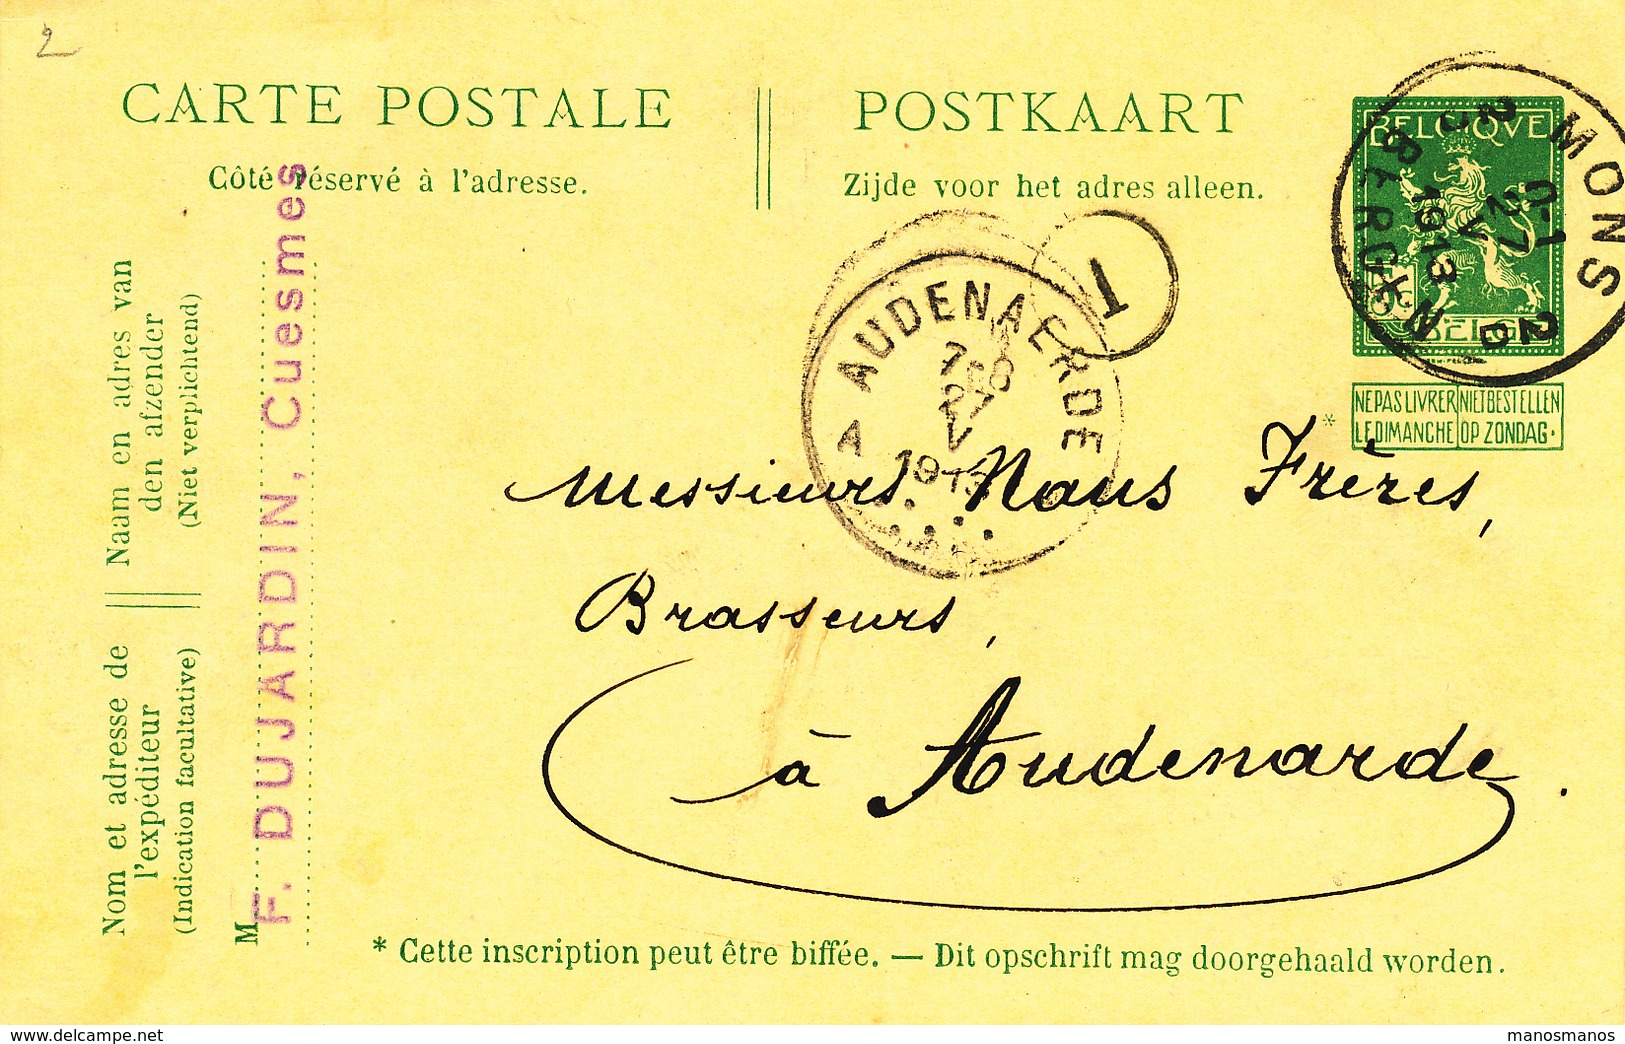 2
CARTE POSTALE
Côté réservé à l'adresse.
POSTKAART
Zijde voor het adres alleen.
BELGIQVE
BELG
MONS
2 2
0-1
27
V
1913
BERGEN
2D
NEPAS LIVRER NIET BESTELLEN
LE DIMANCHE OP ZONDAG.
*
1
AUDENAERDE
A
7-8
27
V
1913
Messieurs Naus Frères,
Brasseurs,
à Audenarde.
Naam en adres van
den afzender
(Niet verplichtend)
Nom et adresse de
l'expéditeur
(Indication facultative)
M
F. DUJARDIN, Cuesmes
* Cette inscription peut être biffée. — Dit opschrift mag doorgehaald worden.
www.delcampe.net
manosmanos